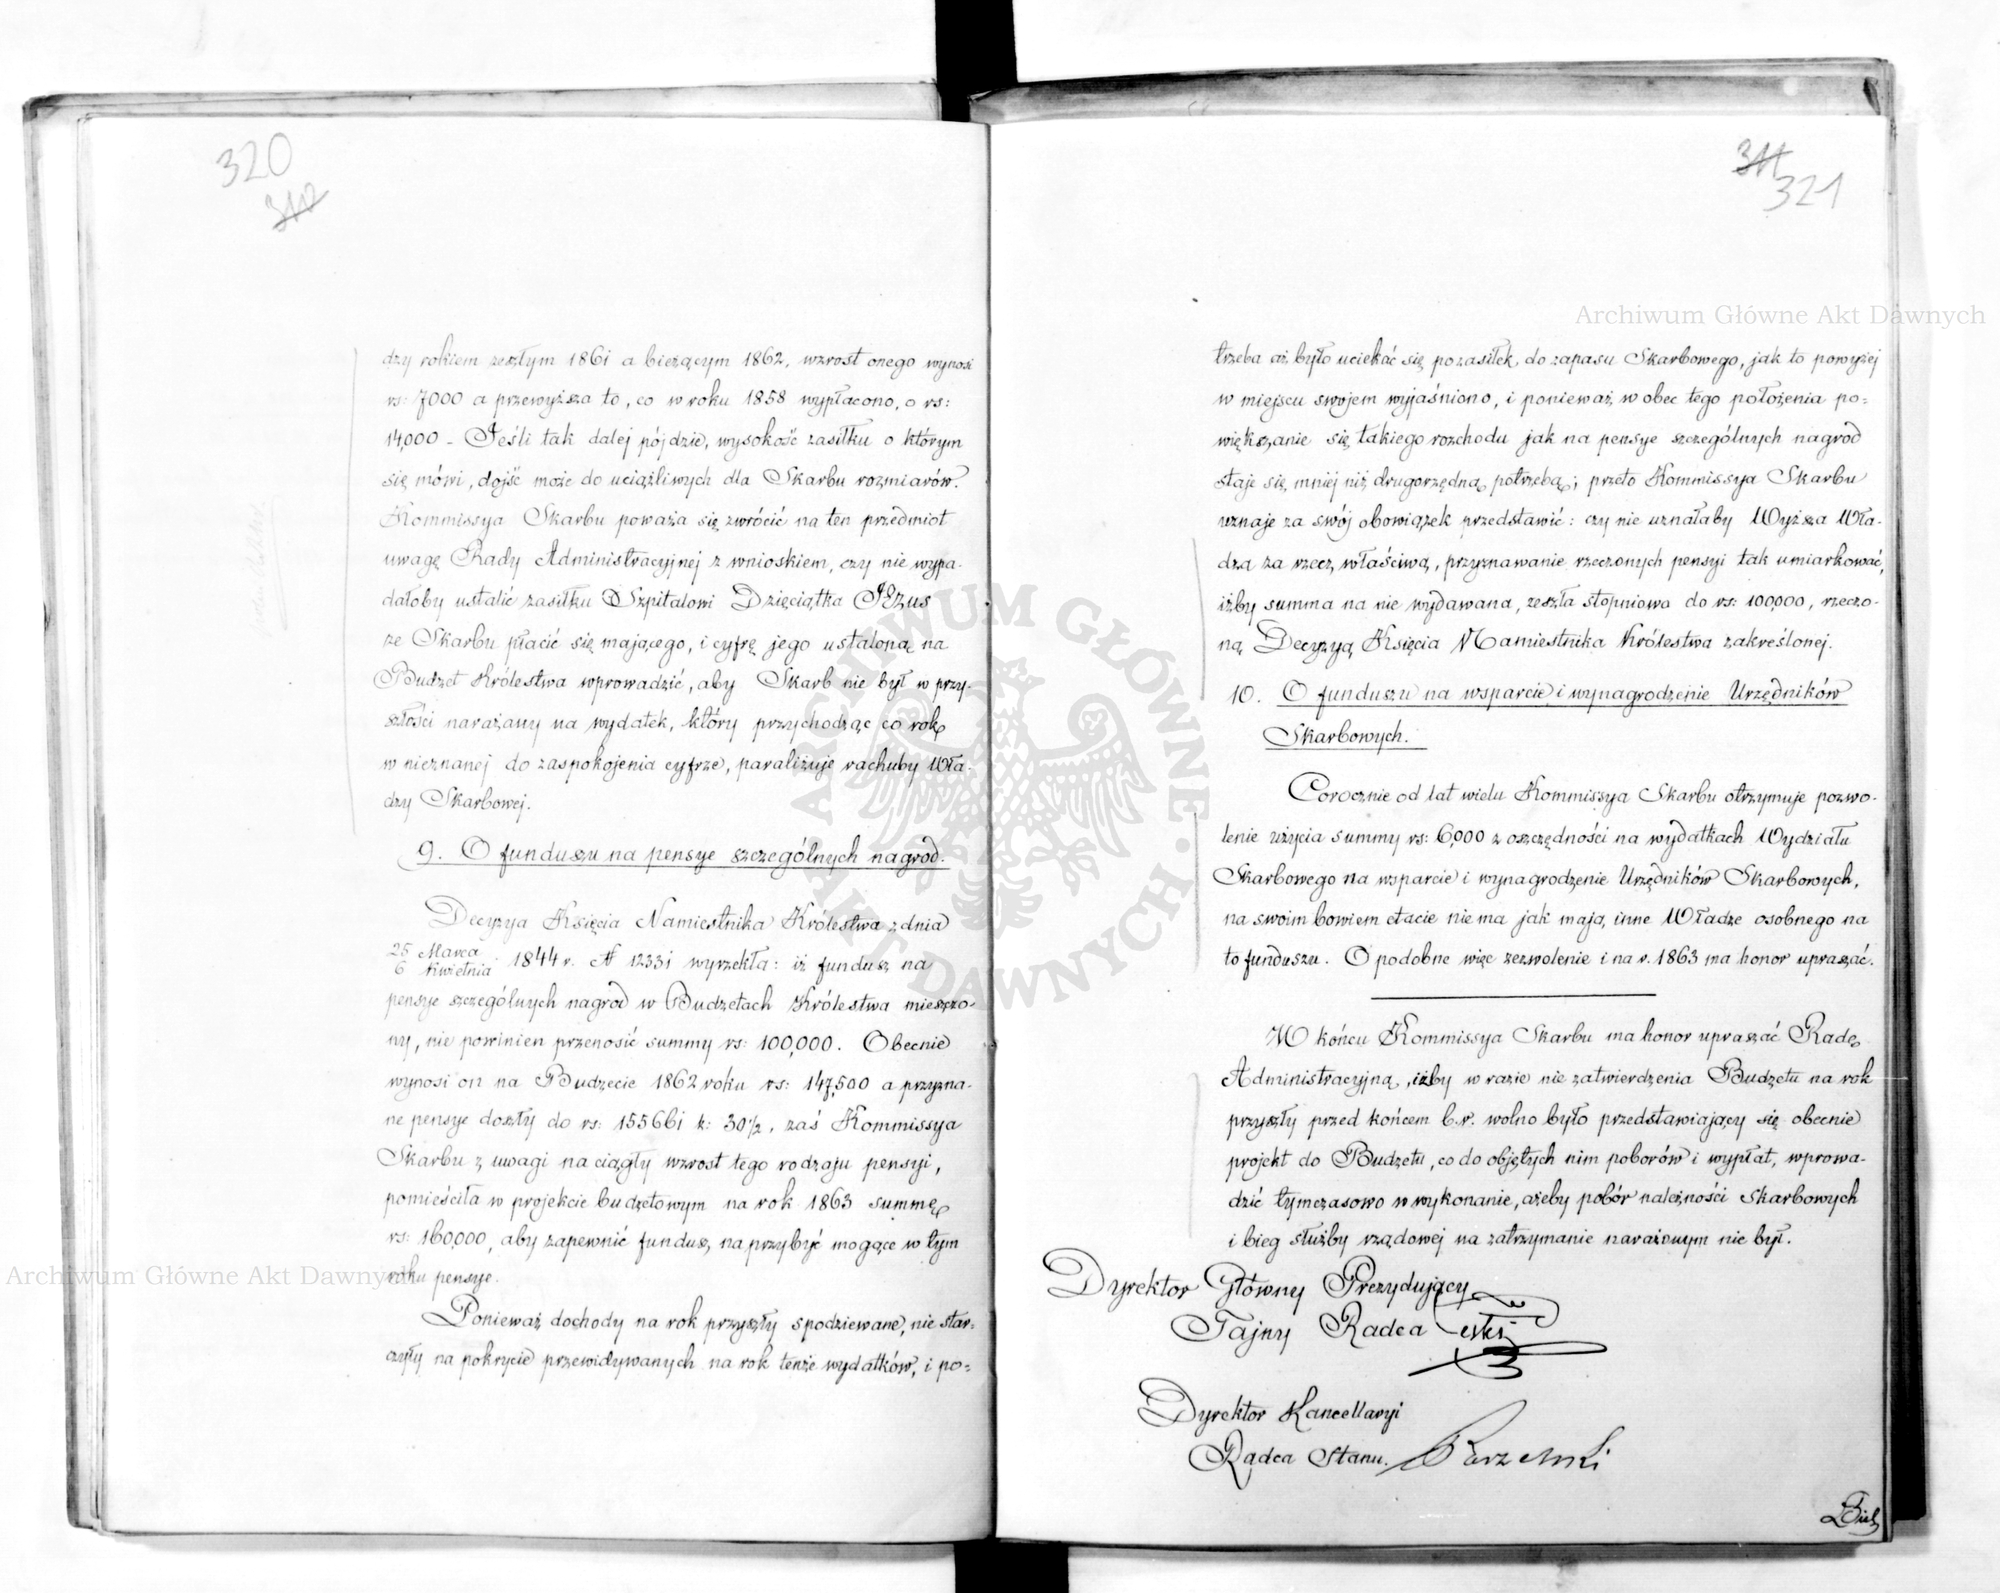 320
312
dzy rokiem zeszłym 1861 a bieżącym 1862, wzrost onego wynosi
rs: 7000 a przewyższa to, co w roku 1858 wypłacono, o rs:
14,000 – Jeśli tak dalej pójdzie, wysokość zasiłku o którym
się mówi, dojść może do uciążliwych dla Skarbu rozmiarów.
Kommissya Skarbu poważa się zwrócić na ten przedmiot
uwagę Rady Administracyjnej z wnioskiem, czy nie wypa-
dałoby ustalić zasiłku Szpitalowi Dzieciątka JEzus
ze Skarbu płacić się mającego, i cyfrę jego ustaloną na
Budżet Królestwa wprowadzić, aby Skarb nie był w przy-
szłości narażany na wydatek, który przychodząc co rok
w nieznanej do zaspokojenia cyfrze, paraliżuje rachuby Wła-
dzy Skarbowej.
9. O funduszu na pensye szczególnych nagród.
Decyzya Księcia Namiestnika Królestwa z dnia
25 Marca
6 Kwietnia 1844 r. N 12331 wyrzekła: iż fundusz na
pensye szczególnych nagród w Budżetach Królestwa mieszczo-
ny, nie powinien przenosić summy rs: 100,000. Obecnie
wynosi on na Budżecie 1862 roku rs: 147,500 a przyzna-
ne pensye doszły do rs: 155661 k: 30½, zaś Kommissya
Skarbu z uwagi na ciągły wzrost tego rodzaju pensyi,
pomieściła w projekcie budżetowym na rok 1863 summę
rs: 160,000, aby zapewnić fundusz na przybyć mogące w tym
roku pensye.
Ponieważ dochody na rok przyszły spodziewane, nie star-
czyły na pokrycie przewidywanych na rok tenże wydatków, i po=
311
321
trzeba aż było uciekać się po zasiłek do zapasu Skarbowego, jak to powyżej
w miejscu swojem wyjaśniono, i ponieważ w obec tego położenia po=
większanie się takiego rozchodu jak na pensye szczególnych nagród
staje się mniej niż drugorzędną potrzebą; przeto Kommissya Skarbu
uznaje za swój obowiązek przedstawić: czy nie uznałaby Wyższa Wła-
dza za rzecz właściwą, przyznawanie rzeczonych pensyi tak umiarkować,
iżby summa na nie wydawana, zeszła stopniowo do rs: 100,000, rzeczo-
ną Decyzyą Księcia Namiestnika Królestwa zakreślonej.
10. O funduszu na wsparcie i wynagrodzenie Urzędników
Skarbowych.
Corocznie od lat wielu Kommissya Skarbu otrzymuje pozwo-
lenie użycia summy rs: 6,000 z oszczędności na wydatkach Wydziału
Skarbowego na wsparcie i wynagrodzenie Urzędników Skarbowych,
na swoim bowiem etacie nie ma jak mają inne Władze osobnego na
to funduszu. O podobne więc zezwolenie i na r. 1863 ma honor upraszać.
W końcu Kommissya Skarbu ma honor upraszać Radę
Administracyjną, iżby w razie nie zatwierdzenia Budżetu na rok
przyszły przed końcem b.r. wolno było przedstawiający się obecnie
projekt do Budżetu, co do objętych nim poborów i wypłat, wprowa-
dzić tymczasowo w wykonanie, ażeby pobór należności Skarbowych
i bieg służby rządowej na zatrzymanie narażonym nie był.
Dyrektor Główny Prezydujący
Tajny Radca
Dyrektor Kancellaryi
Radca Stanu.
Archiwum Główne Akt Dawnych
Archiwum Główne Akt Dawnych
ARCHIWUM GŁÓWNE · AKT DAWNYCH ·